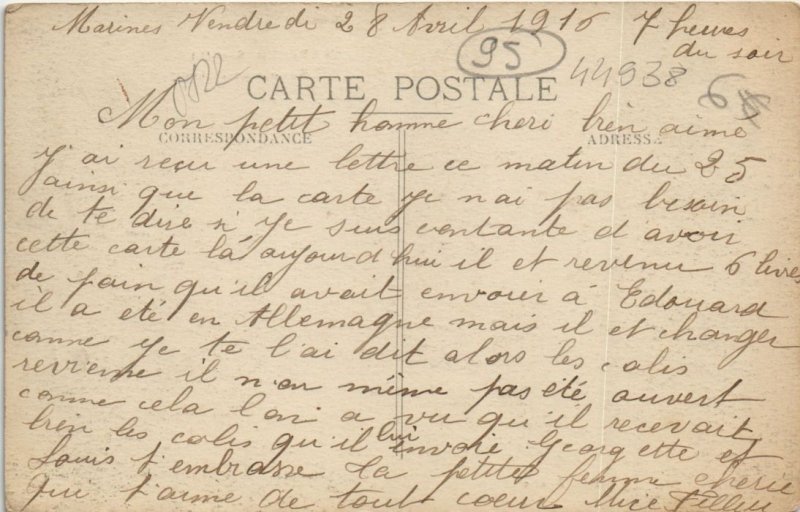 Marines Vendredi 28 Avril 1916 7 heures
du soir
95
44938
CARTE POSTALE
Mon petit homme cheri bien aimé
CORRESPONDANCE
ADRESSE
J'ai reçu une lettre ce matin du 25
ainsi que la carte je n'ai pas besoin
de te dire si je suis contante d'avoir
cette carte là aujourd'hui il et revenu 6 livres
de pain qu'il avait envoier à Edouard
il a été en Allemagne mais il et changer
comme je te l'ai dit alors les colis
revienne il n'on même pas été ouvert
comme cela l'on a vu qu'il recevait
bien les colis qu'il lui envoie Georgette et
Louis t'embrasse Ta petite femme cherie
que t'aime de tout coeur